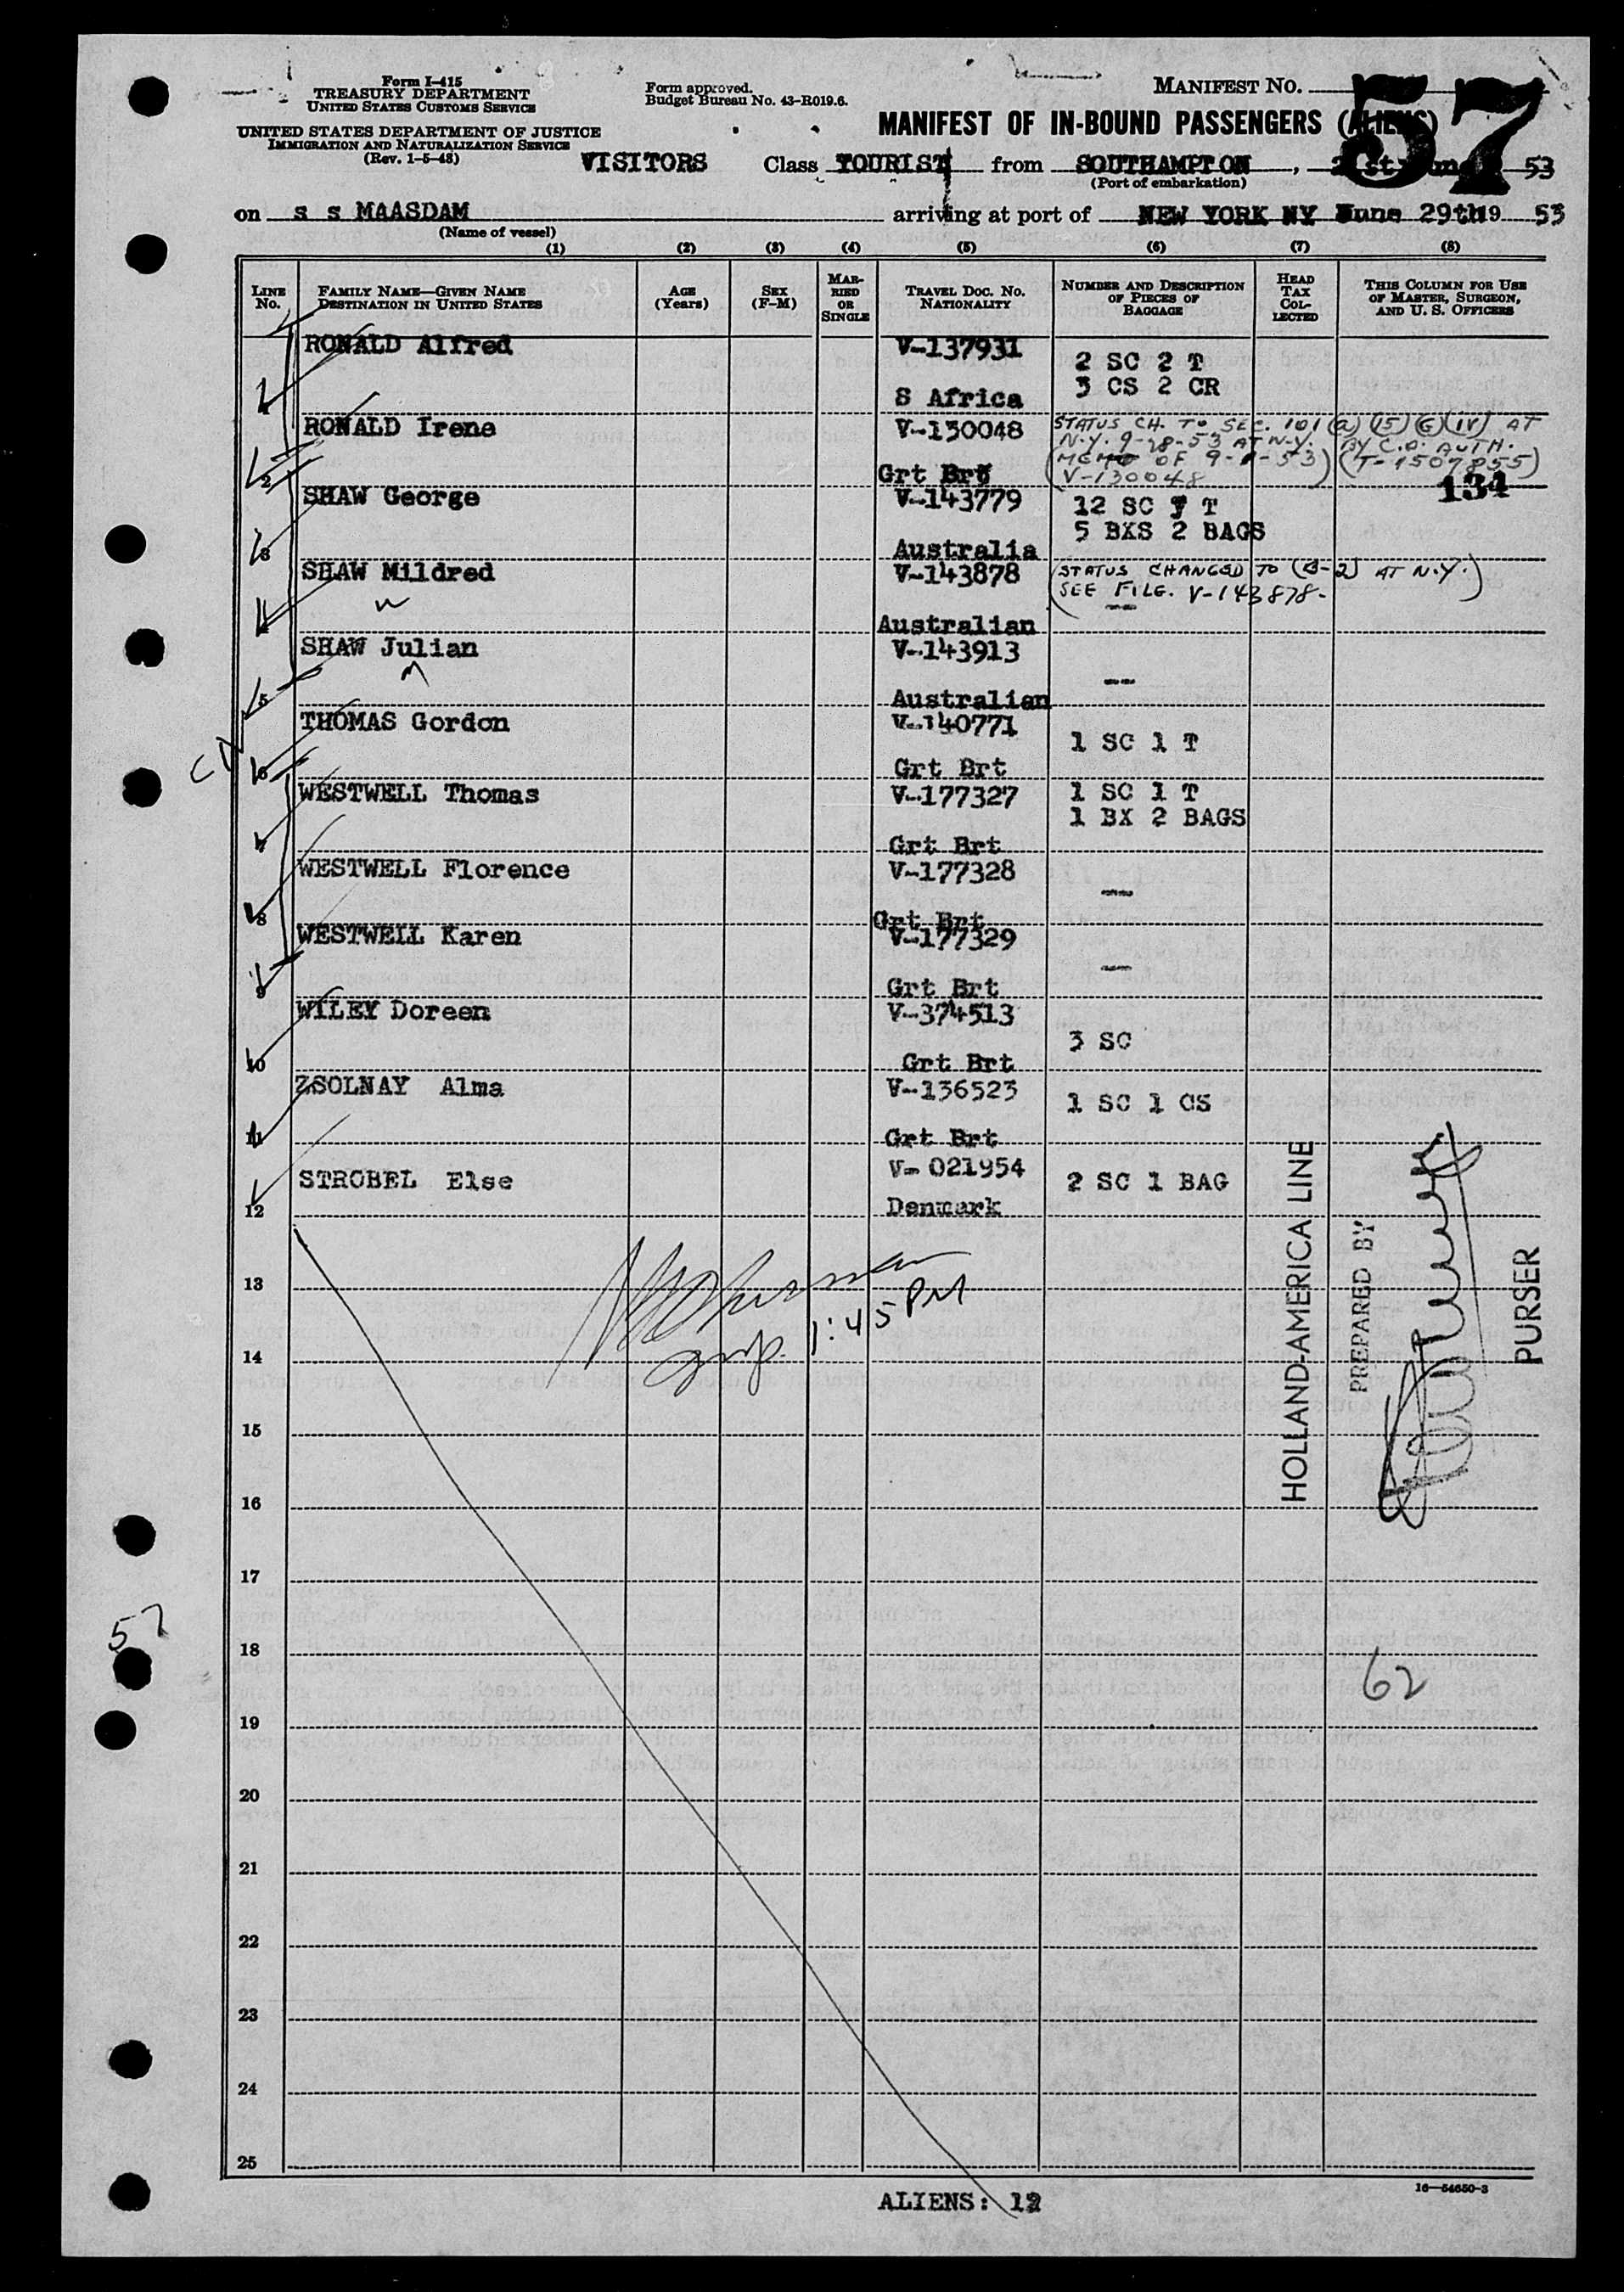 Form I-415
TREASURY DEPARTMENT
UNITED STATES CUSTOMS SERVICE
UNITED STATES DEPARTMENT OF JUSTICE
IMMIGRATION AND NATURALIZATION SERVICE
(Rev. 1-5-48)
Form approved.
Budget Bureau No. 43-R019.6.
MANIFEST NO.
57
MANIFEST OF IN-BOUND PASSENGERS (ALIENS)
VISITORS Class TOURIST from SOUTHAMPTON, 53
(Port of embarkation)
on s s MAASDAM arriving at port of NEW YORK NY June 29th 19 53
(Name of vessel)
(1) (2) (3) (4) (5) (6) (7) (8)
LINE No. FAMILY NAME—GIVEN NAME DESTINATION IN UNITED STATES AGE (Years) SEX (F-M) MARRIED OR SINGLE TRAVEL DOC. NO. NATIONALITY NUMBER AND DESCRIPTION OF PIECES OF BAGGAGE HEAD TAX COLLECTED THIS COLUMN FOR USE OF MASTER, SURGEON, AND U. S. OFFICERS
RONALD Alfred V-137931
2 SC 2 T
3 CS 2 CR
S Africa
RONALD Irene V-130048 STATUS CH. TO SEC. 101 (a) (15) (G) (IV) AT
N.Y. 9-28-53 AT N.Y. BY C.O. AUTH.
(MEMO OF 9-1-53) (T-1507855)
2 Grt Brt V-130048
134
SHAW George V-143779 12 SC T
5 BXS 2 BAGS
3 Australia
SHAW Mildred V-143878 (STATUS CHANGED TO (B-2) AT N.Y.)
SEE FILE. V-143878-
--
Australian
SHAW Julian V-143913
--
5 Australian
THOMAS Gordon V-140771
1 SC 1 T
6 Grt Brt
WESTWELL Thomas V-177327 1 SC 1 T
1 BX 2 BAGS
7 Grt Brt
WESTWELL Florence V-177328
--
8 Grt Brt
WESTWELL Karen V-177329
--
9 Grt Brt
WILEY Doreen V-374513
3 SC
10 Grt Brt
ZSOLNAY Alma V-136523
1 SC 1 CS
11 Grt Brt
STROBEL Else V-021954 2 SC 1 BAG
12 Denmark
13
1:45 PM
14
15
16
17
18
19
20
21
22
23
24
25
HOLLAND-AMERICA LINE
PREPARED BY
PURSER
57
62
ALIENS: 12
16—54650-3